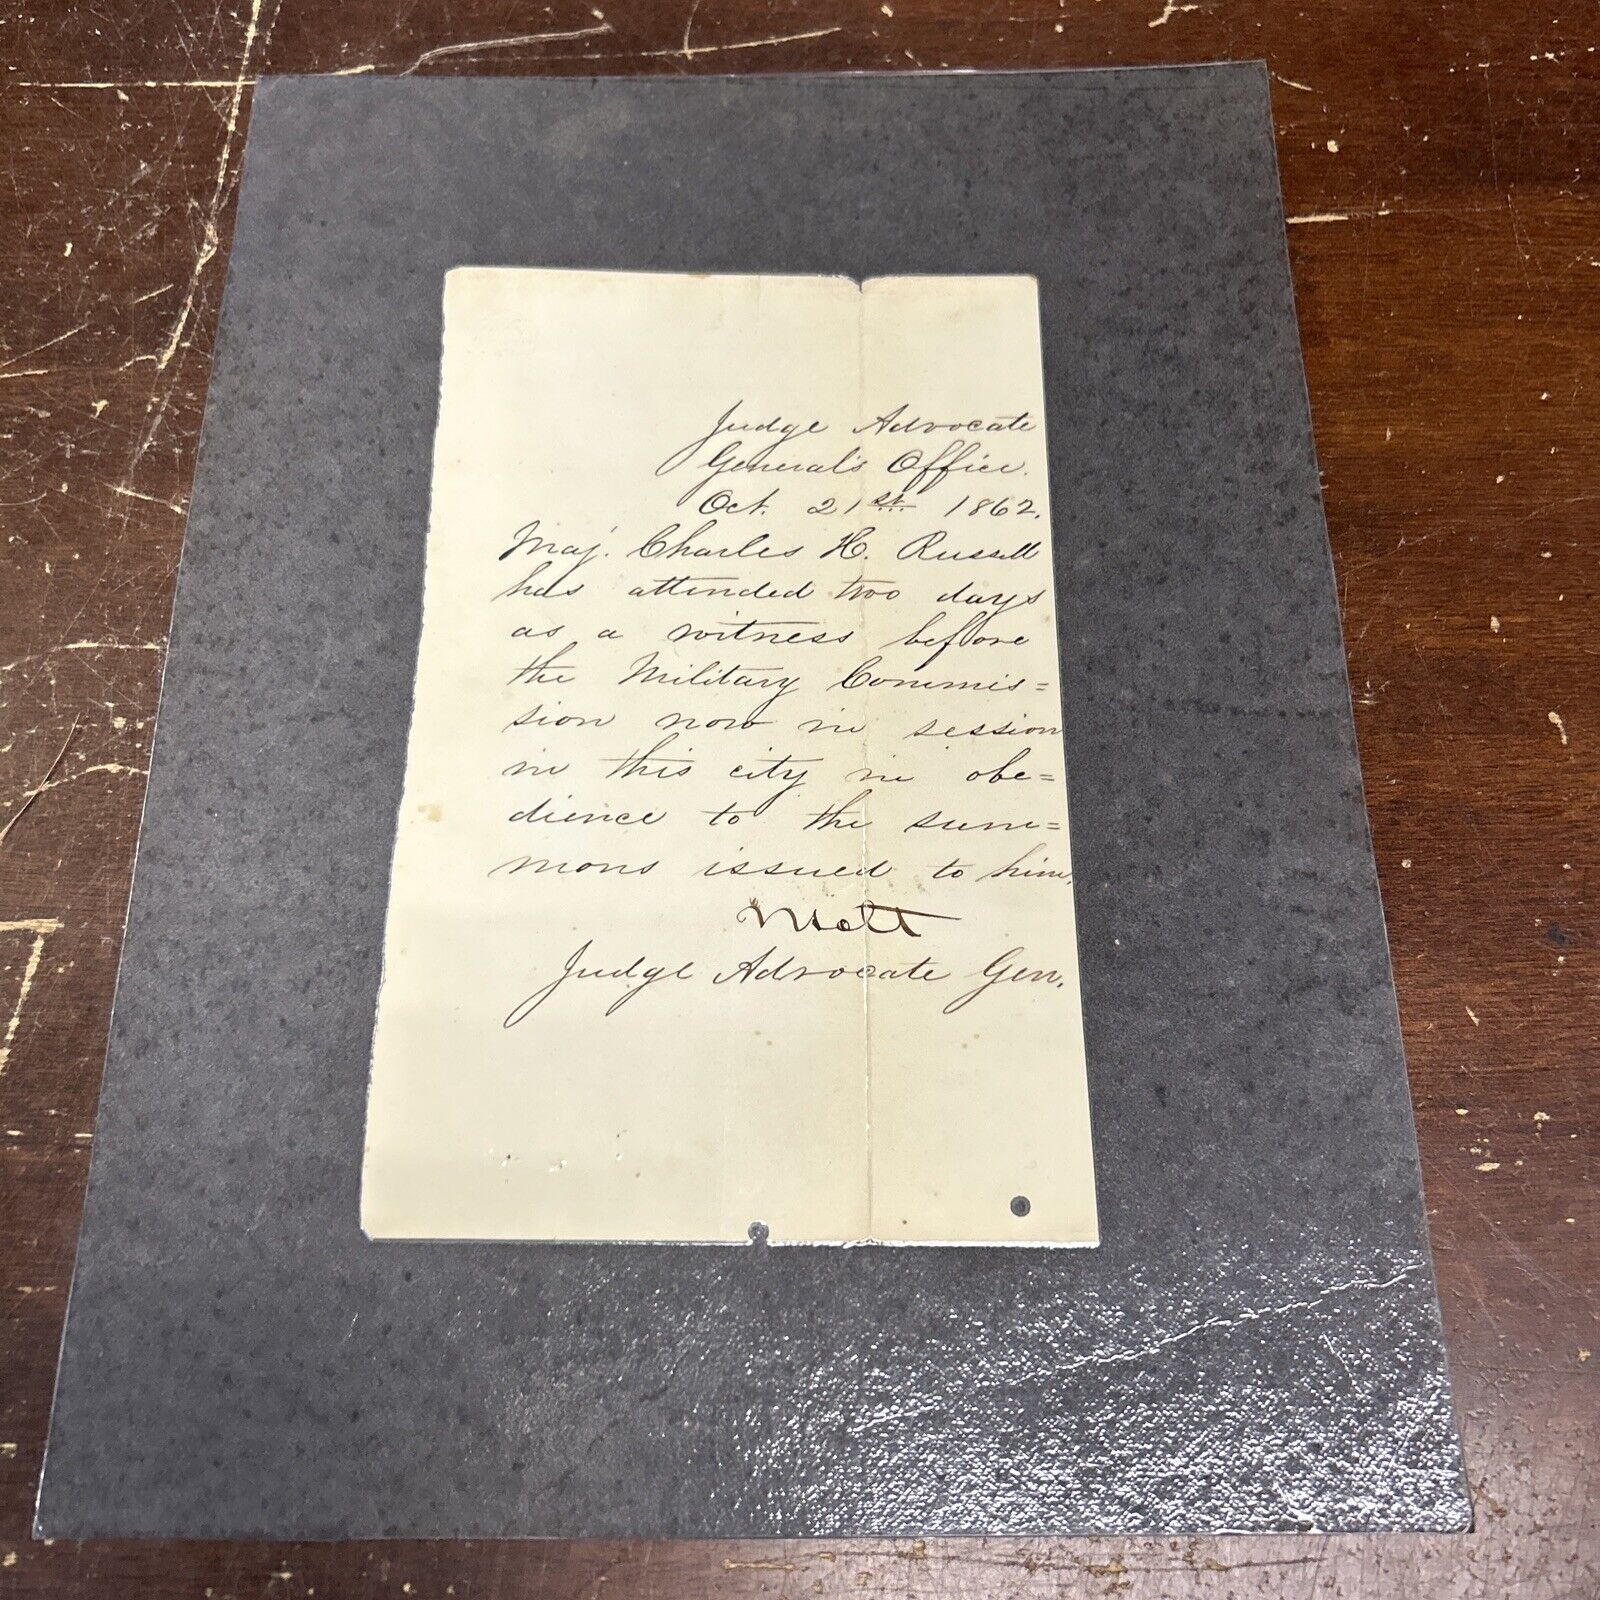 Judge Advocate
General's Office.
Oct. 21st. 1862.
Maj. Charles H. Russell
has attended two days
as a witness before
the Military Commis=
sion now in session
in this city in obe=
dience to the sum=
mons issued to him.
Judge Advocate Gen.